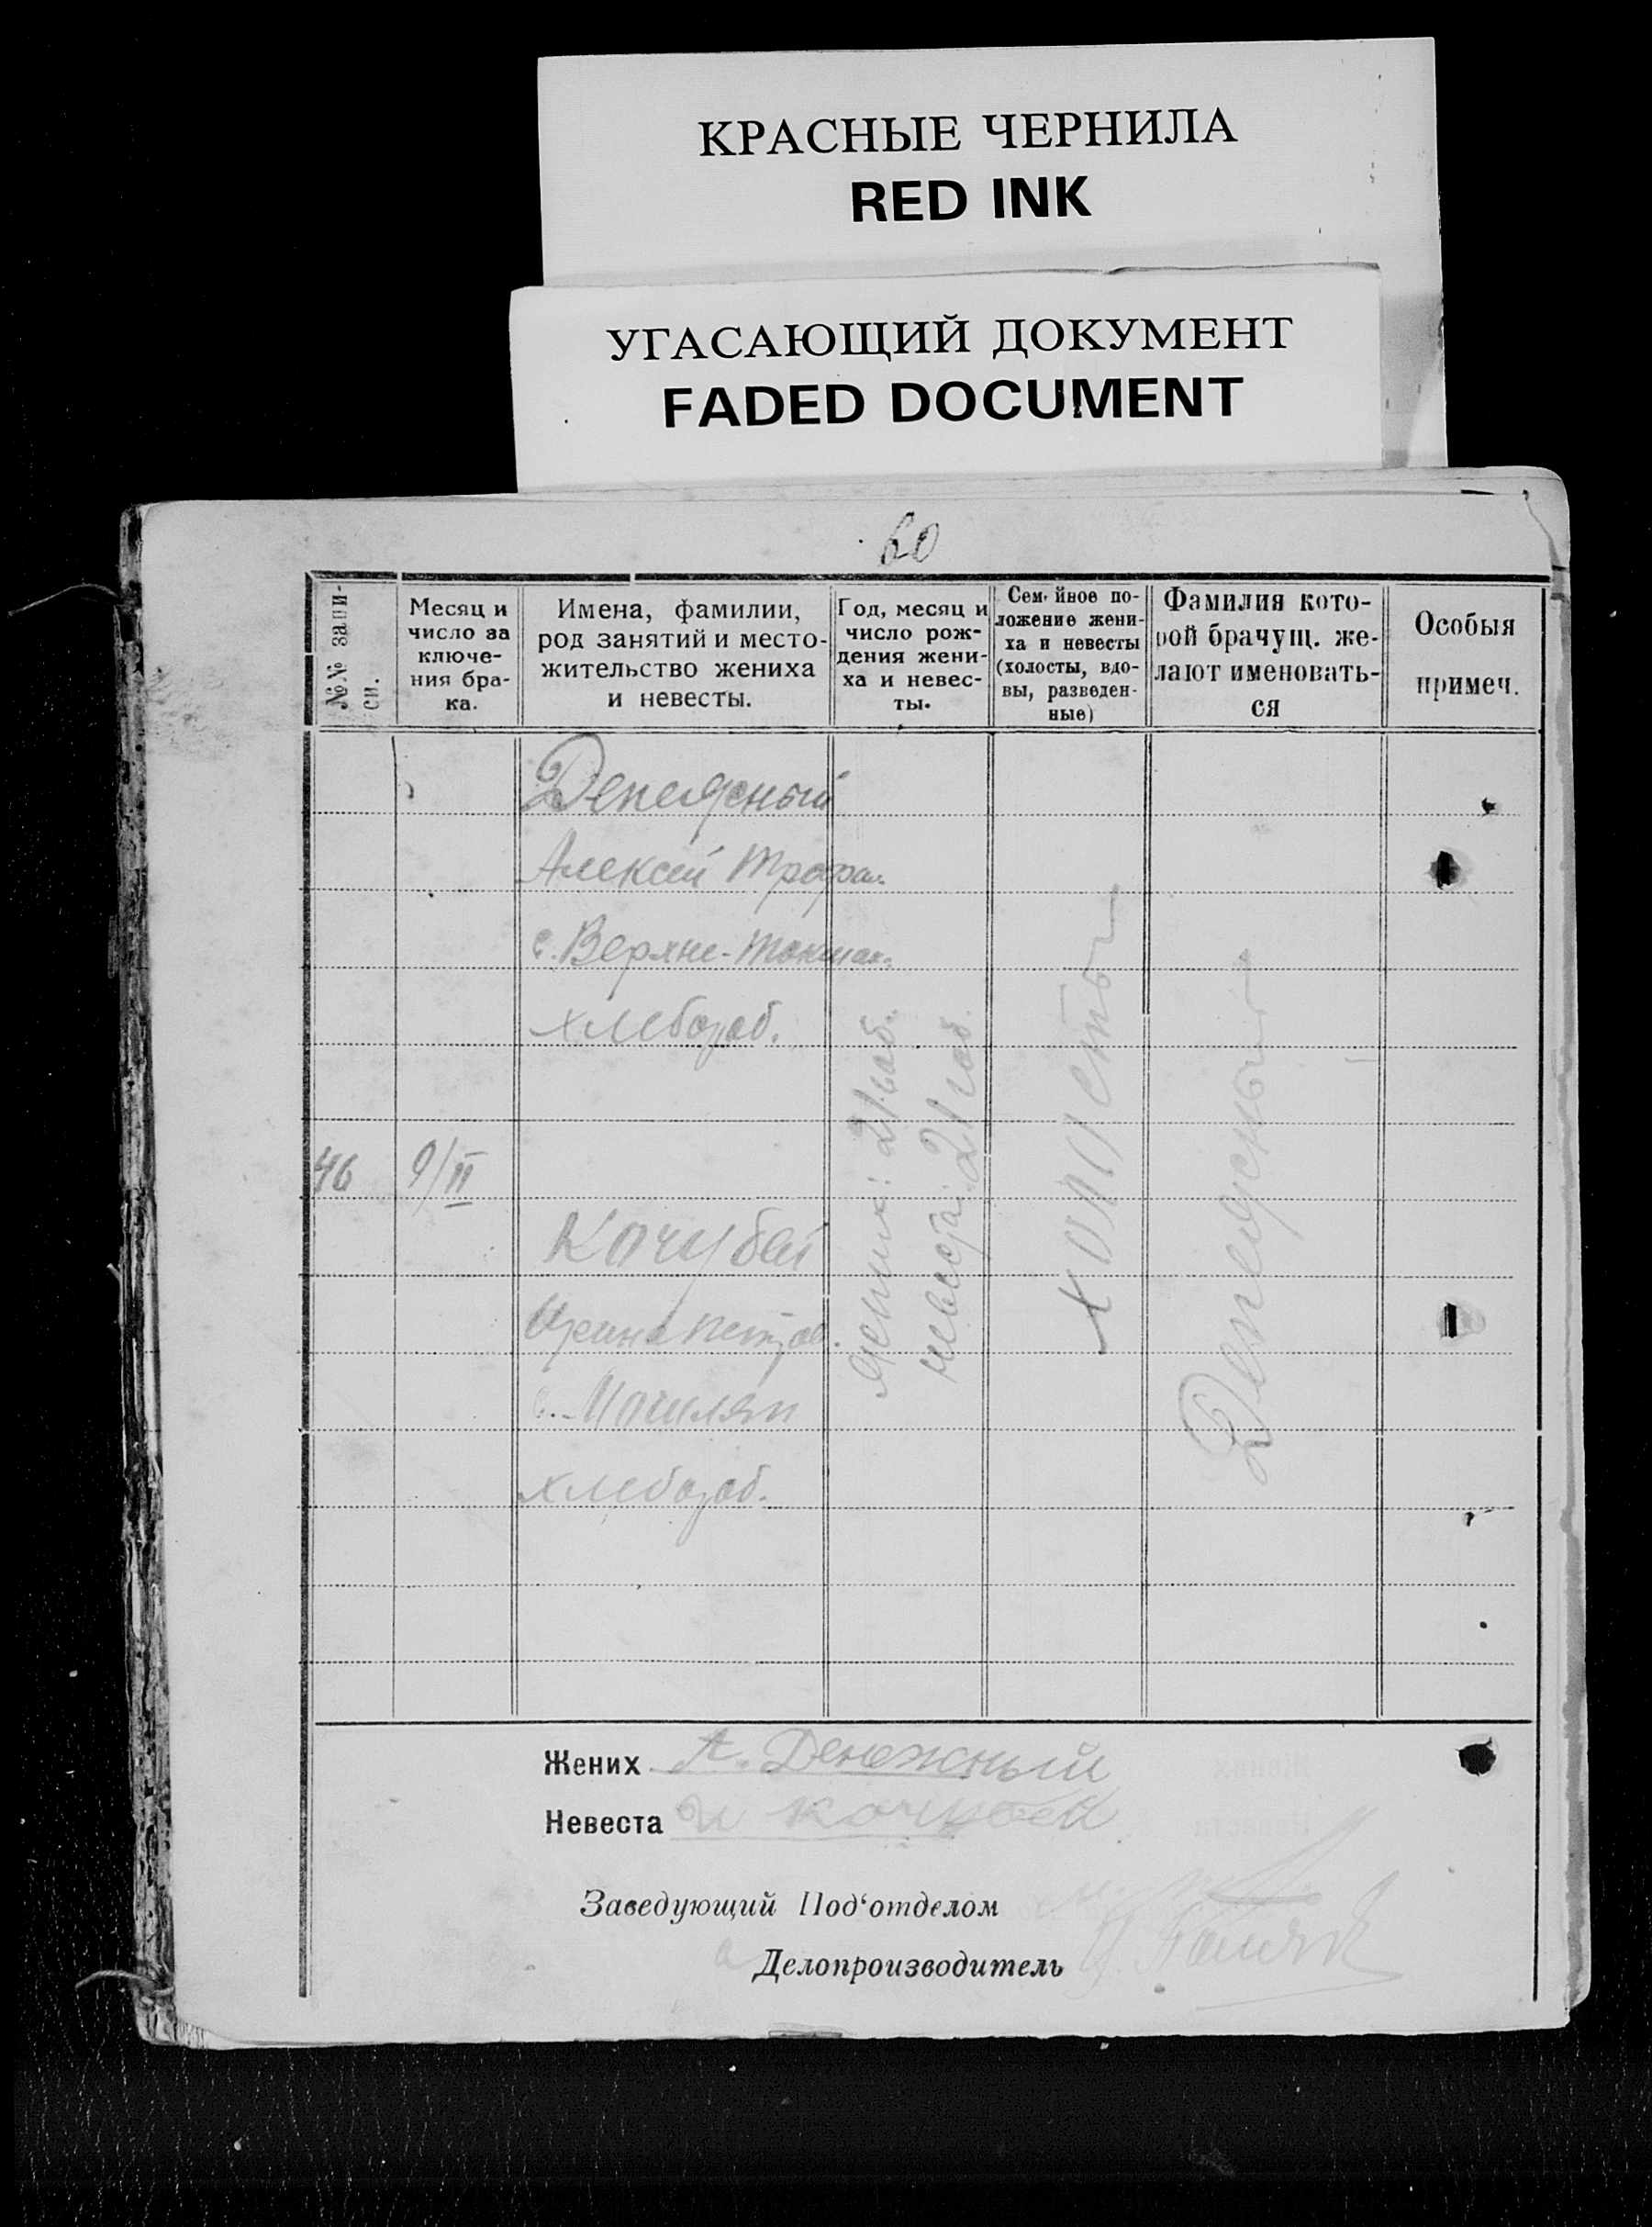 КРАСНЫЕ ЧЕРНИЛА
RED INK
УГАСАЮЩИЙ ДОКУМЕНТ
FADED DOCUMENT
60
№№ запи-
си.
Месяц и
число за
ключе-
ния бра-
ка.
Имена, фамилии,
род занятий и место-
жительство жениха
и невесты.
Год, месяц и
число рож-
дения жени-
ха и невес-
ты.
Семейное по-
ложение жени-
ха и невесты
(холосты, вдо-
вы, разведен-
ные)
Фамилия кото-
рой брачущ. же-
лают именовать-
ся
Особыя
примеч.
46
9/II
Денежный
Алексей Трофим.
с. Верхне-Токмак.
хлебороб.
Кочубей
Ирина Петров.
с.
хлебороб.
жених: 21 год.
невеста: 21 год.
холосты
Денежный
Жених А. Денежный
Невеста И Кочубей
Заведующий Под‘отделом
Делопроизводитель